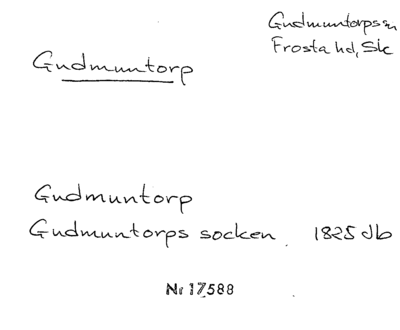 Gudmuntorpssn
Frosta hd, Sk
Gudmuntorp
Gudmuntorp
Gudmuntorps socken. 1825 db
Nr 17588